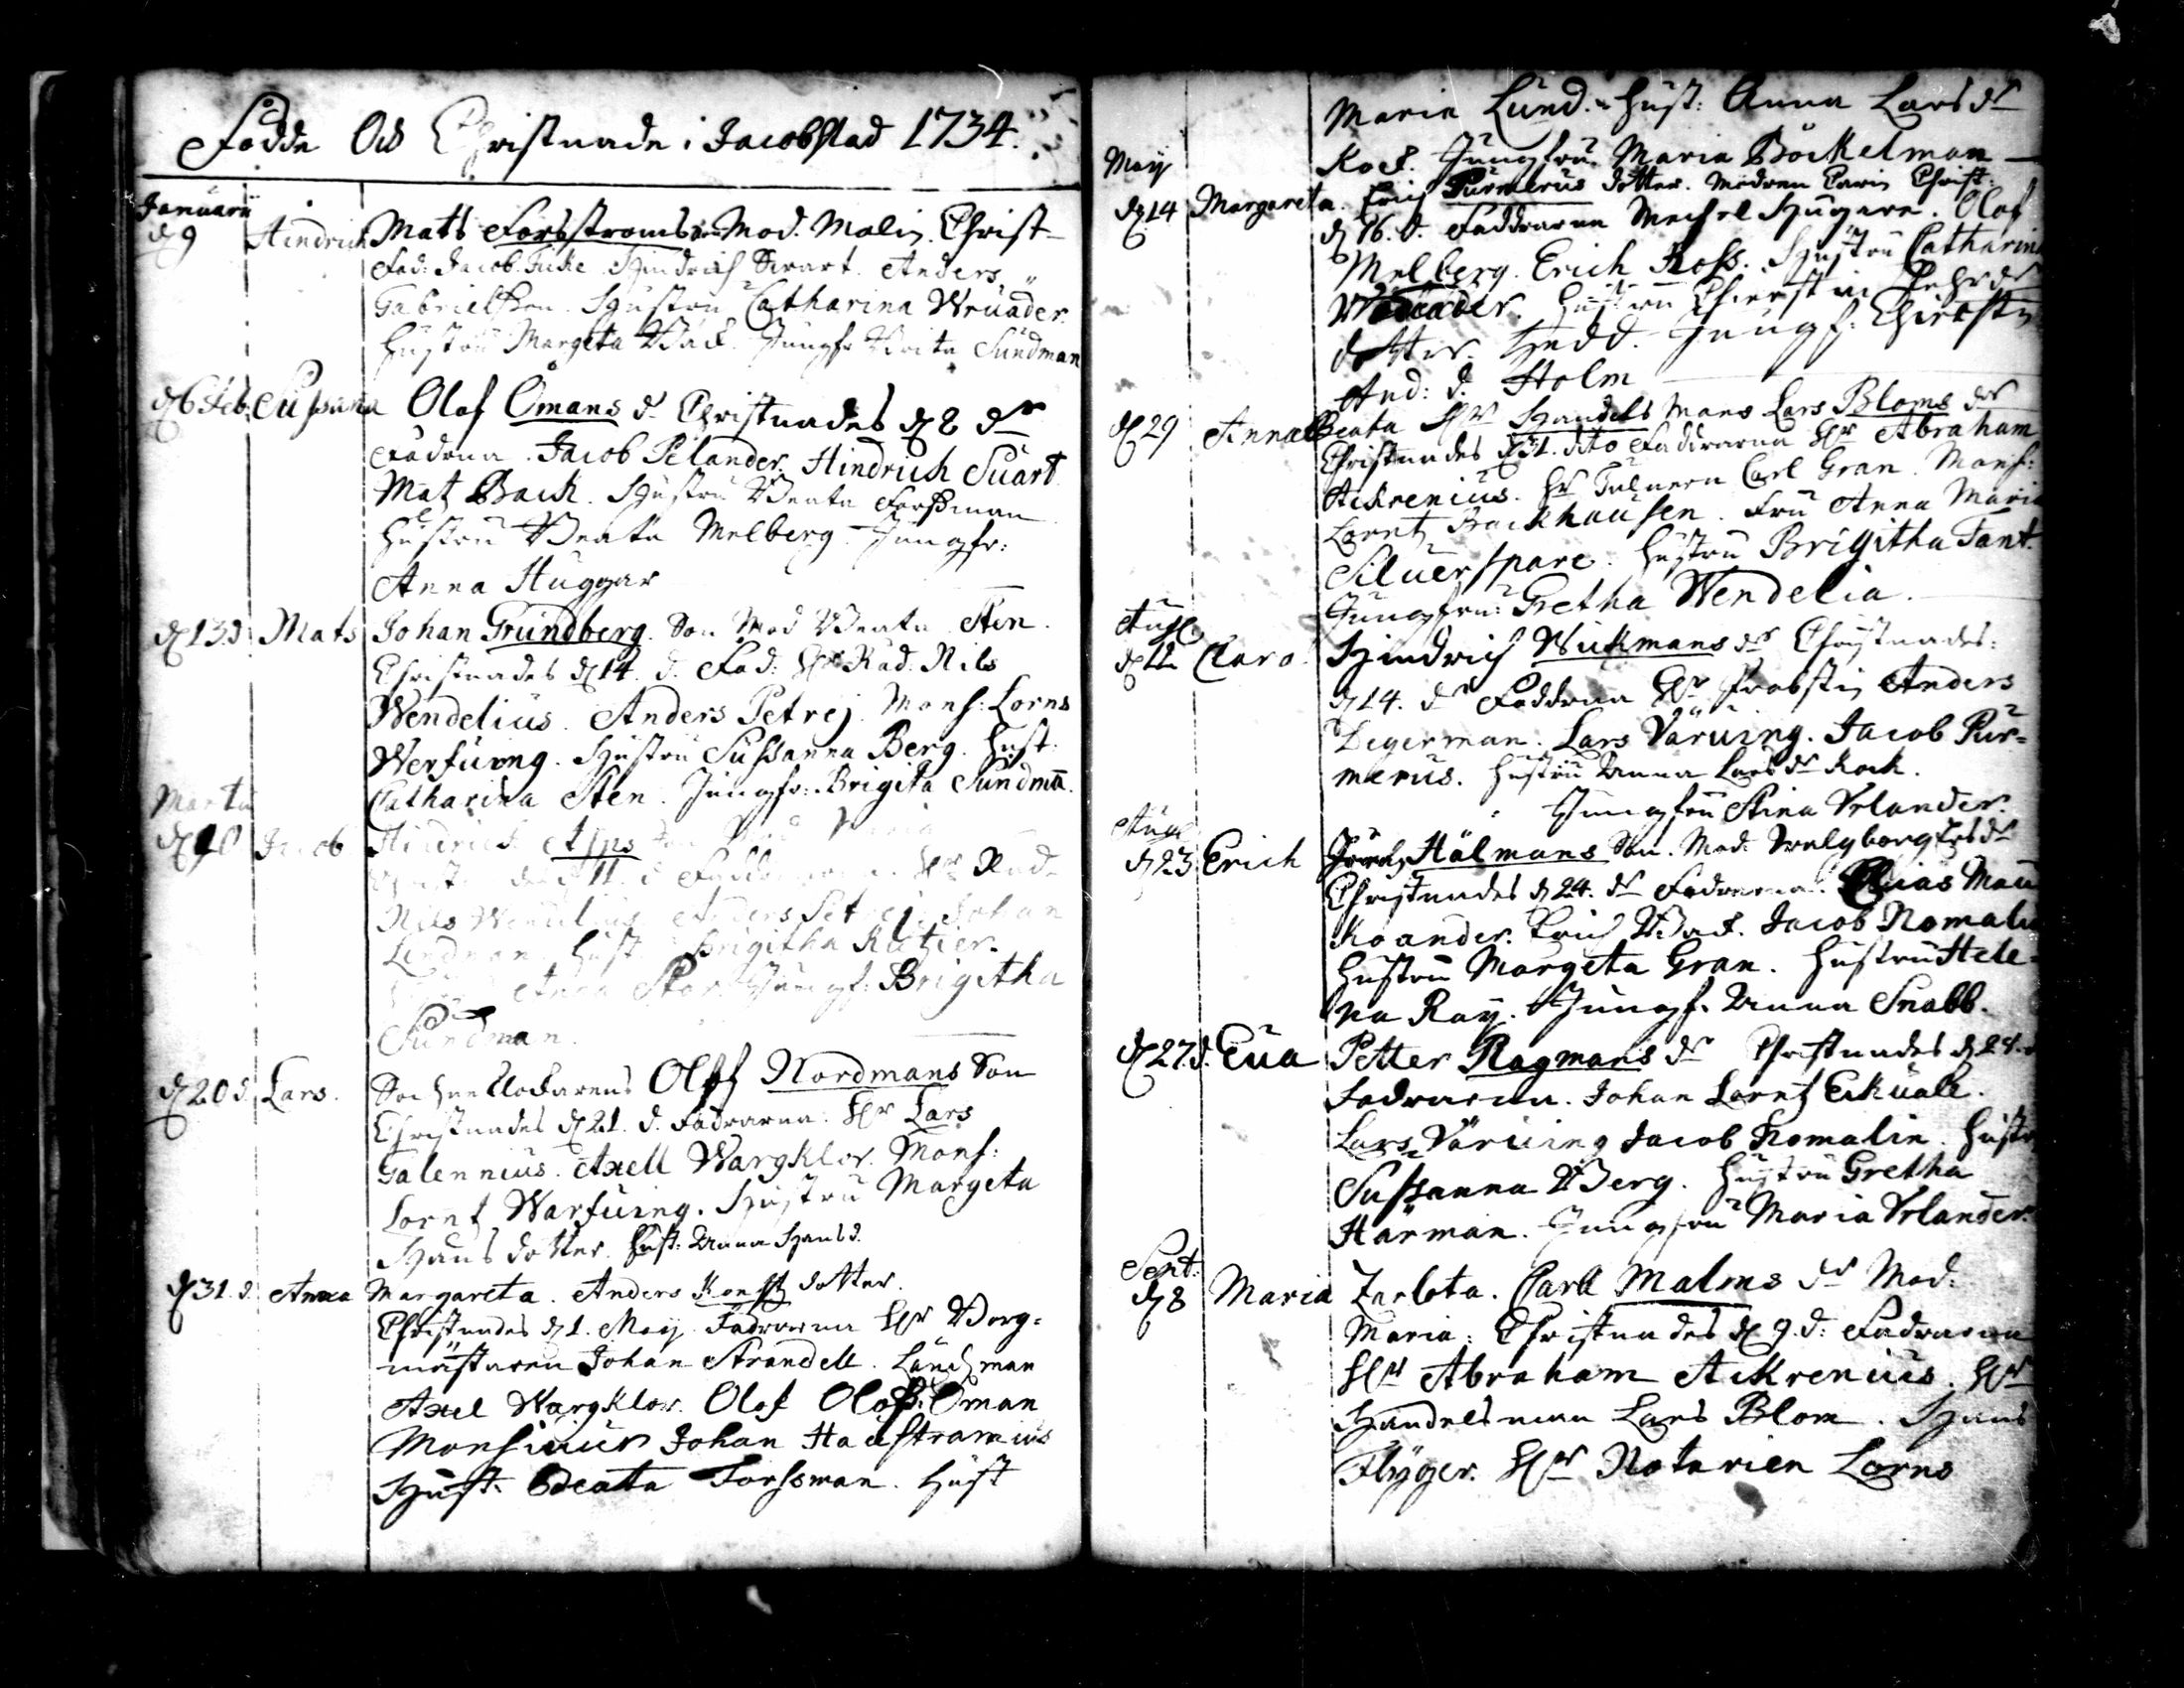 Födde Och Christnade i Jacobstad 1734.
Januarii
d 9 Hindrich Mats Forsstroms Mod. Malin Christ
Fad: Jacob Hindrich Swart. Anders
Gabrielsson. Hustru Catharina Wruäder.
hustru Margeta Bäck. Jungfr Brita Sundman
d 6 Feb. Sussana Olof Ömans dr Christnades d 8 dr
Fadrna. Jacob Pelander. Hindrich Suart.
Mat Back. Hustru Beata Forssman
Hustru Beata Melberg. Jungfr:
Anna Huggar
d 13 d Mats Johan Grundberg. Son Mod Beata Sten.
Christnades d 14. d. Fad: Hr Råd. Nils
Wendelius. Anders Petrej. Mons: Lorns
Werfuing. Hustru Sussanna Berg. Hust:
Catharina Sten. Jungfr: Brigita Sundman.
Martii
d 10 Jacob Hindrich Asps
11. d Hr Råd.
Nils Wendelius Anders Petrej. Johan
Lindman hust Brigitha Rutzier.
Anna Jungf: Brigitha
Sundman.
d 20 d. Lars. Sochne klockarens Olof Nordmans Son
Christnades d 21. d. Fadrarna: Hr Lars
Galennius. Axell Wargklor. Mons:
Lornt Warfuing. Hustru Margeta
Hans dotter. hust: Anna Hans d.
d 31. d Anna Margareta. Anders Konst dotter.
Christnades d 1. May. Fadrarna Hr Borg=
mästaren Johan Strandell. Länsman
Axel Wargklor. Olof Olofs: Öman
Monsieur Johan Haustramius
Hust: Beata Forssman. Hust
Maria Lund. Hust: Anna Lars dr
Kock. Jungfru Maria Böckelman
May
d 14 Margareta. Erich Purmerus dotter. Modren Carin Christ:
d 16. d. Faddrarna Michel Hugare. Olof
Melberg. Erich Ross. Hustru Catharina
Wruäder. Hustru Chierstin Pehrs dr
dotter. Hedd. Jungf: Chirstin
And: d. Holm
d 29 Anna Beata Hr Handels Mans Lars Bloms dr
Christnades d 31. dito Faddrarna Hr Abraham
Ackrenius. Hr Tulnern Carl Gran. Mons:
Lorentz Brackhausen. Fru Anna Maria
Siluerspare. Hustru Brigitha Tant.
Jungfru: Gretha Wendelia.
Aug:
d 12 Clara. Hindrich Wickmans dr Christnades:
d 14. dr Faddrna Hr Probstin Anders
Degerman. Lars Väruing. Jacob Pur=
merus. Hustru Anna Lars dr Kock.
Jungfru Stina Vrlander.
Aug:
d 23 Erich Hälmans Son. Mod: Walgborg
Christnades d 24. dr Fadrarna. Elias
Koander. Erich Back. Jacob Nomalin
Hustru Margeta Gran. Hustru Hele=
na Ray. Jungf. Anna Snabb.
d 27 d. Eua Petter Ragmans dr Christnades d 28.
Fadrarna. Johan Lorntz Eckuall.
Lars Väruing Jacob Nomalin. Hustr
Sussanna Berg. Hustru Gretha
Härman. Jungfru Maria Vrlander.
Sept:
d 8 Maria Zarlota. Carll Malms dr Mod:
Maria: Christnades d 9. d: Fadrarna
Hr Abraham Ackrenius. Hr
Handelsman Lars Blom. Hans
Flygger. Hr Notarien Lorns